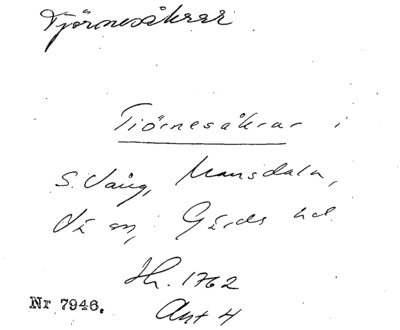 Tjörnesåkrar
Tiörnesåkrar i
S. Vång, Mansdala,
Gärds hd
Hh. 1762
Akt 4
Nr 7946.